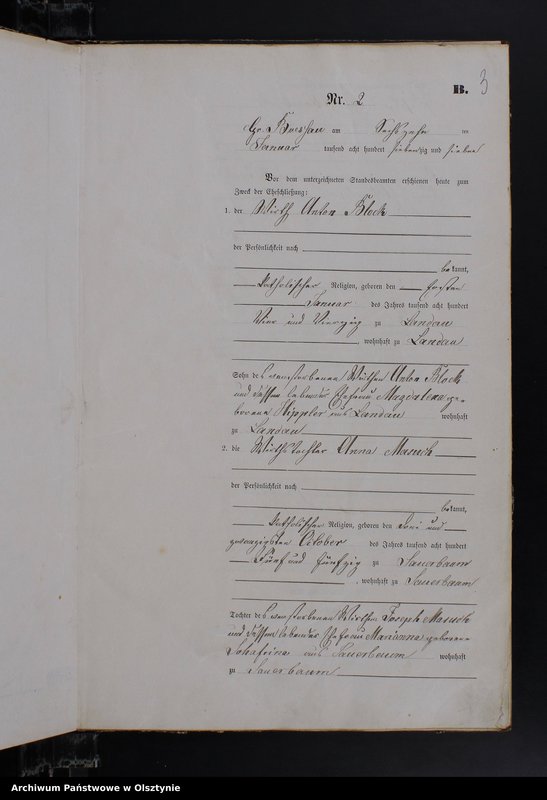 B. 3
Nr. 2
Gr. Boessau am Sechszehn ten
Januar tausend acht hundert siebenzig und sieben
Vor dem unterzeichneten Standesbeamten erschienen heute zum
Zweck der Eheschließung:
1. der Wirth Anton Block
der Persönlichkeit nach
bekannt,
katholischer Religion, geboren den ersten
Januar des Jahres tausend acht hundert
Vier und Vierzig zu Landau
, wohnhaft zu Landau
Sohn des verstorbenen Wirthen Anton Block
und dessen lebender Ehefrau Magdalena ge-
borene Hippler aus Landau wohnhaft
zu Landau
2. die Wirthstochter Anna Masuch
der Persönlichkeit nach
bekannt,
katholischer Religion, geboren den Drei und
zwanzigsten October des Jahres tausend acht hundert
Fünf und fünfzig zu Sauerbaum
, wohnhaft zu Sauerbaum
Tochter des verstorbenen Wirthen Joseph Masuch
und dessen lebender Ehefrau Marianna geborene
aus Sauerbaum wohnhaft
zu Sauerbaum
Archiwum Państwowe w Olsztynie